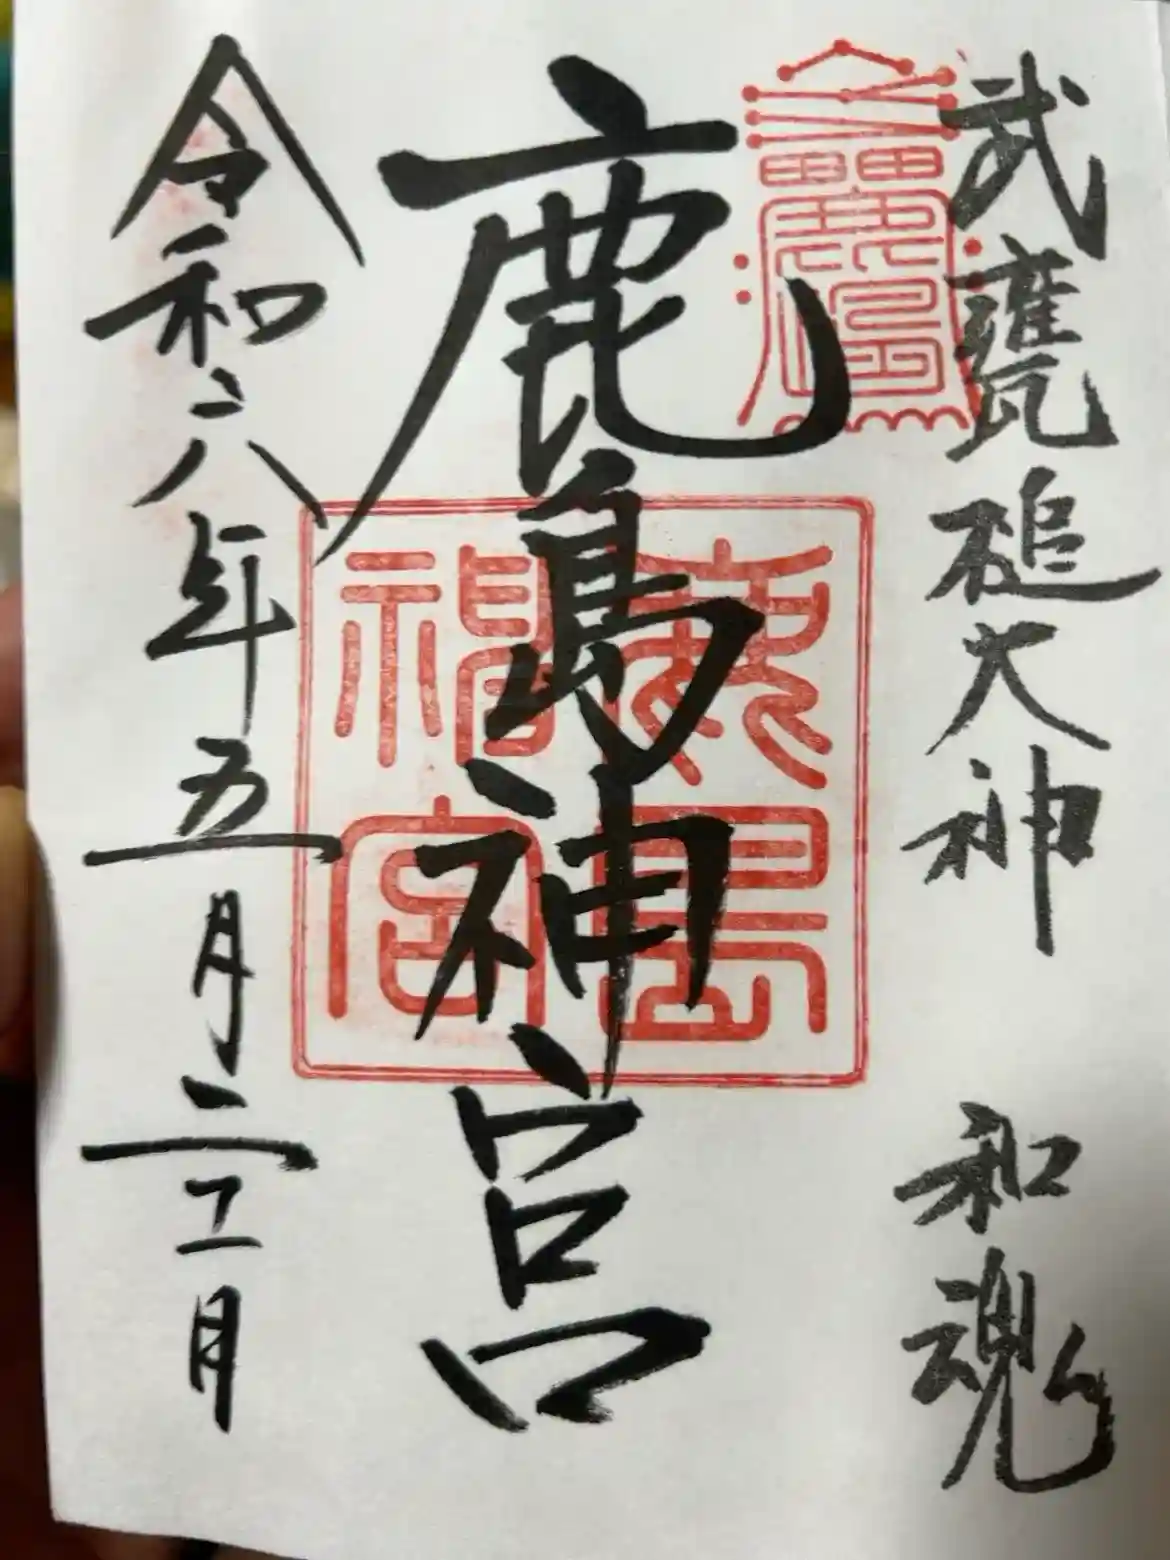 武甕槌大神 和魂
鹿島神宮
鹿島
神宮
令和六年五月二十一日